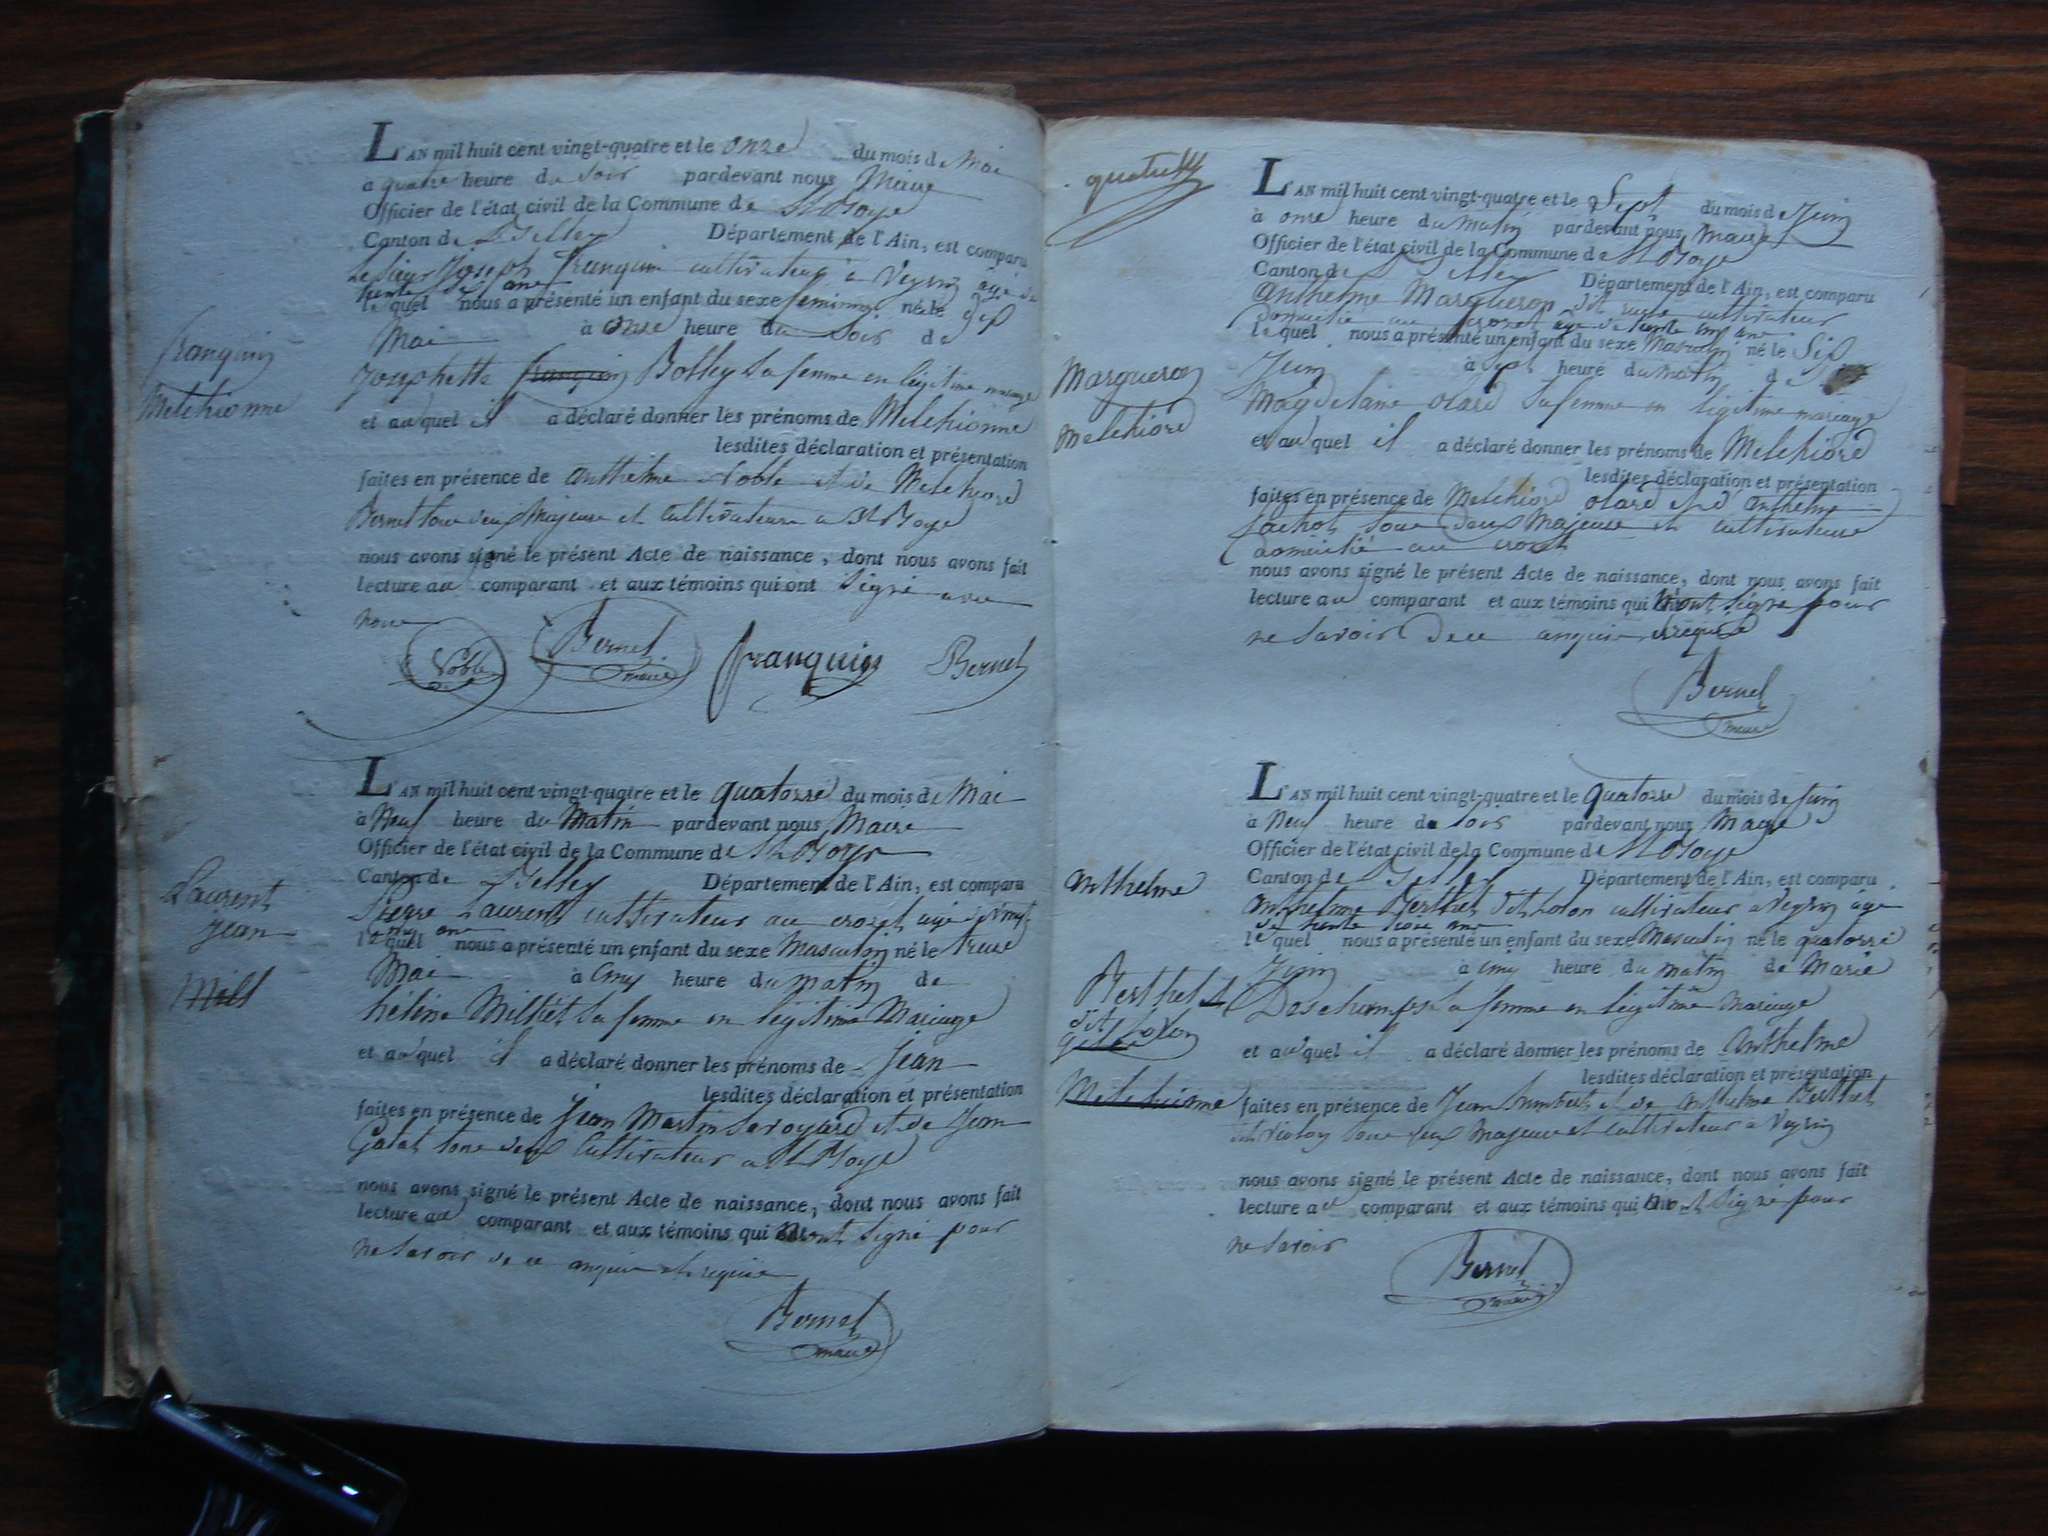 L'AN mil huit cent vingt-quatre et le onze du mois de Mai
a quatre heure du Soir pardevant nous Maire
Officier de l'état civil de la Commune de St Boys
Canton de Belley Département de l'Ain, est comparu
Le Sieur Joseph franquin cultivateur a Veyrin agé de
trente ans
le quel nous a présenté un enfant du sexe feminin né le dix
Mai à onze heure du Soir de
Josephette franquin Bolley Sa femme en légitime mariage
et au quel il a déclaré donner les prénoms de Melchionne
lesdites déclaration et présentation
faites en présence de anthelme Noble et de Melchiord
Bernet tous deux Majeurs et Cultivateurs a St Boys
nous avons signé le présent Acte de naissance, dont nous avons fait
lecture au comparant et aux témoins qui ont Signé avec
nous
Noble Bernet maire franquin Bernet
franquin
Melchionne
L'AN mil huit cent vingt-quatre et le quatorze du mois de Mai
à Neuf heure du Matin pardevant nous Maire
Officier de l'état civil de la Commune de St Boys
Canton de Belley Département de l'Ain, est comparu
Pierre Laurent cultivateur au crozet agé de vingt
ans
le quel nous a présenté un enfant du sexe Masculin né le treize
Mai à cinq heure du matin de
héléne Milliet Sa femme en légitime Mariage
et au quel il a déclaré donner les prénoms de Jean
lesdites déclaration et présentation
faites en présence de Jean Martin Savoyard et de Jean
Galat tous deux Cultivateurs a St Boys
nous avons signé le présent Acte de naissance, dont nous avons fait
lecture au comparant et aux témoins qui n'ont Signé pour
ne Savoir de ce enquis et requis
Bernet
maire
Laurent
jean
Mill
quatre
L'AN mil huit cent vingt-quatre et le Sept du mois de Juin
à onze heure du Matin pardevant nous Maire
Officier de l'état civil de la Commune de St Boys
Canton de Belley Département de l'Ain, est comparu
anthelme Margueron dit cultivateur
domicilié au crozet agé de trente cinq ans
le quel nous a présenté un enfant du sexe Masculin né le Six
Juin à Sept heure du Matin de
Magdelaine olard Sa femme en légitime mariage
et au quel il a déclaré donner les prénoms de Melchiord
lesdites déclaration et présentation
faites en présence de Melchiord olard et d'anthelme
tous deux Majeurs et cultivateurs
domicilié au crozet
nous avons signé le présent Acte de naissance, dont nous avons fait
lecture au comparant et aux témoins qui n'ont Signé pour
ne Savoir de ce enquis et requis
Bernet
maire
Margueron
Melchiord
L'AN mil huit cent vingt-quatre et le quatorze du mois de Juin
à Neuf heure du Soir pardevant nous Maire
Officier de l'état civil de la Commune de St Boys
Canton de Belley Département de l'Ain, est comparu
anthelme Berthet dit Lolon cultivateur a Veyrin agé
de trente trois ans
le quel nous a présenté un enfant du sexe Masculin né le quatorze
Juin à cinq heure du matin de Marie
Deschamps Sa femme en légitime Mariage
et au quel il a déclaré donner les prénoms de anthelme
lesdites déclaration et présentation
faites en présence de Jean humbert et de anthelme Berthet
dit violon tous deux majeurs et cultivateur a Veyrin
nous avons signé le présent Acte de naissance, dont nous avons fait
lecture au comparant et aux témoins qui n'ont Signé pour
ne Savoir
Bernet
maire
anthelme
Berthet
dit
Lolon
Melchionne